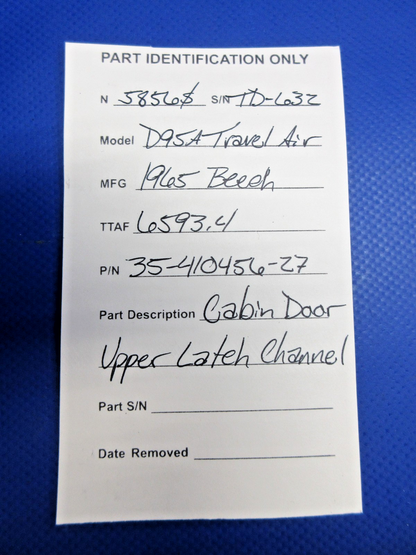 PART IDENTIFICATION ONLY
N 5856$ S/N TD-632
Model D95A Travel Air
MFG 1965 Beech
TTAF 6593.4
P/N 35-410456-27
Part Description Cabin Door
Upper Latch Channel
Part S/N
Date Removed